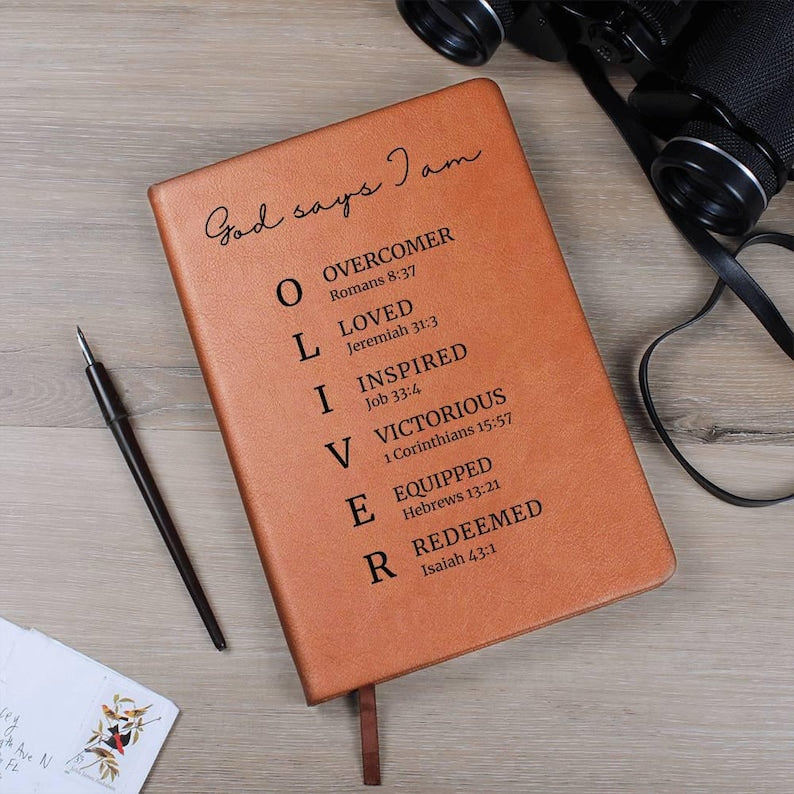 God says I am
O OVERCOMER
Romans 8:37
L LOVED
Jeremiah 31:3
I INSPIRED
Job 33:4
V VICTORIOUS
1 Corinthians 15:57
E EQUIPPED
Hebrews 13:21
R REDEEMED
Isaiah 43:1
Ave N
FL